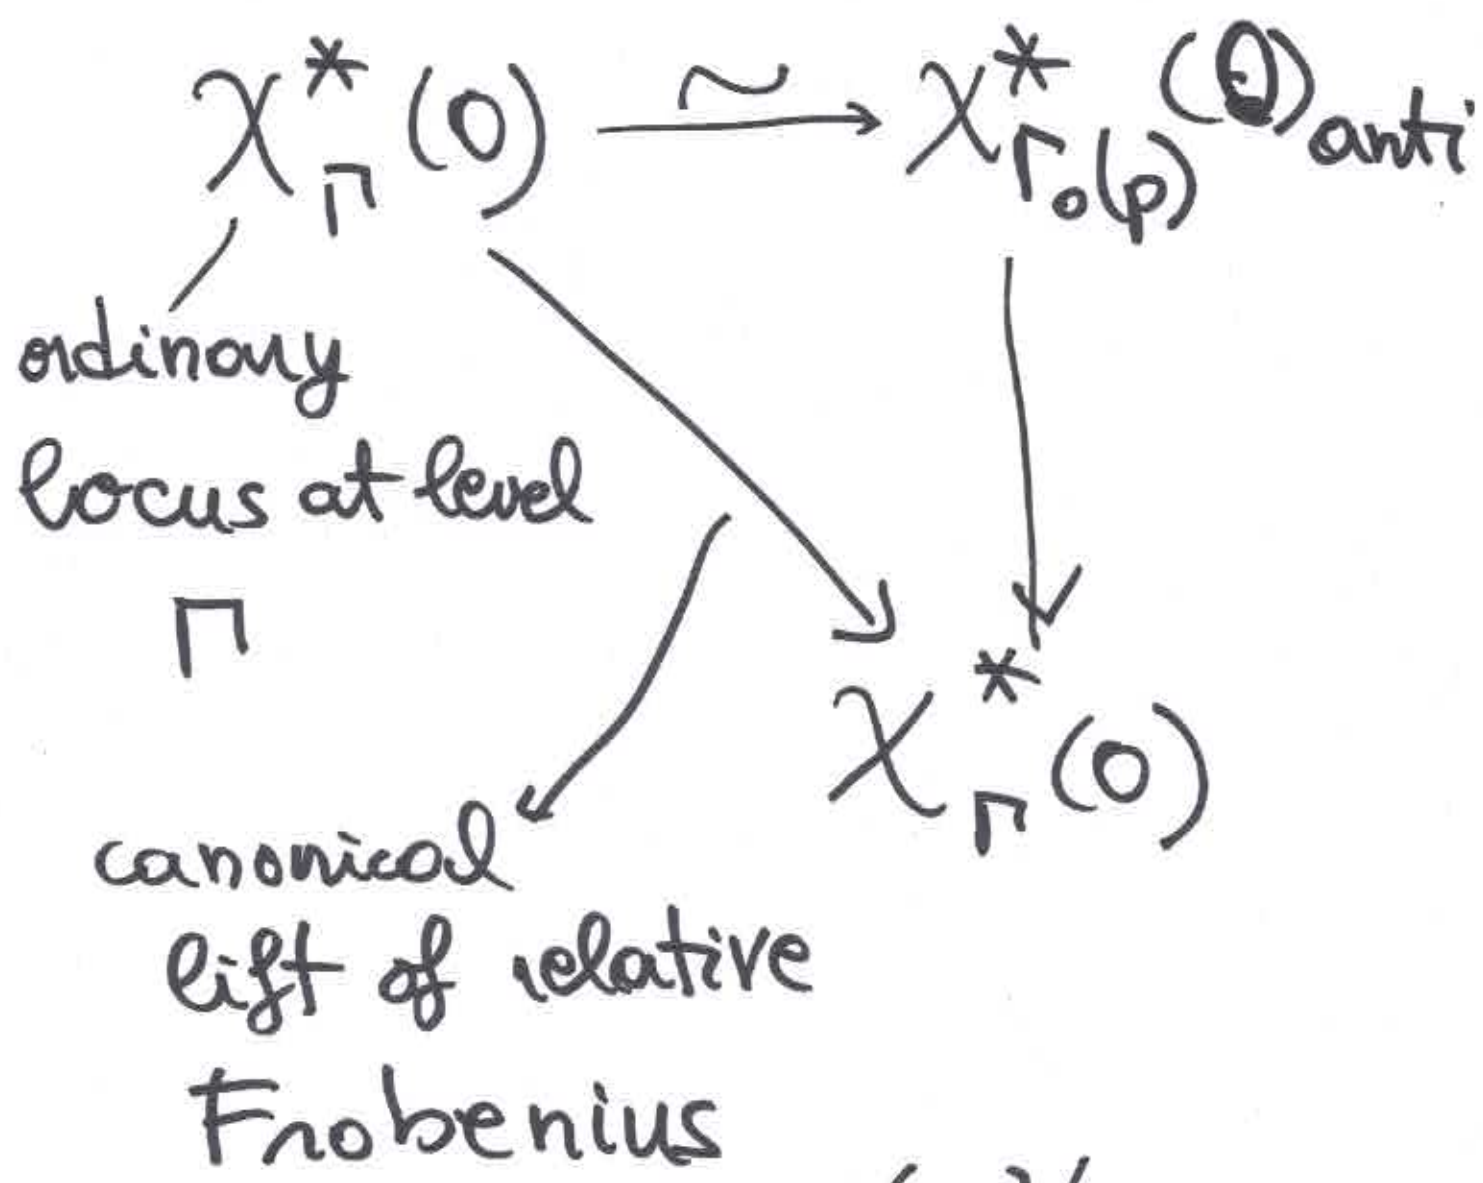 𝒳*_Γ(0) ⥲ 𝒳*_Γ₀(p)(0)_anti
ordinary
locus at level
Γ
𝒳*_Γ(0)
canonical
lift of relative
Frobenius